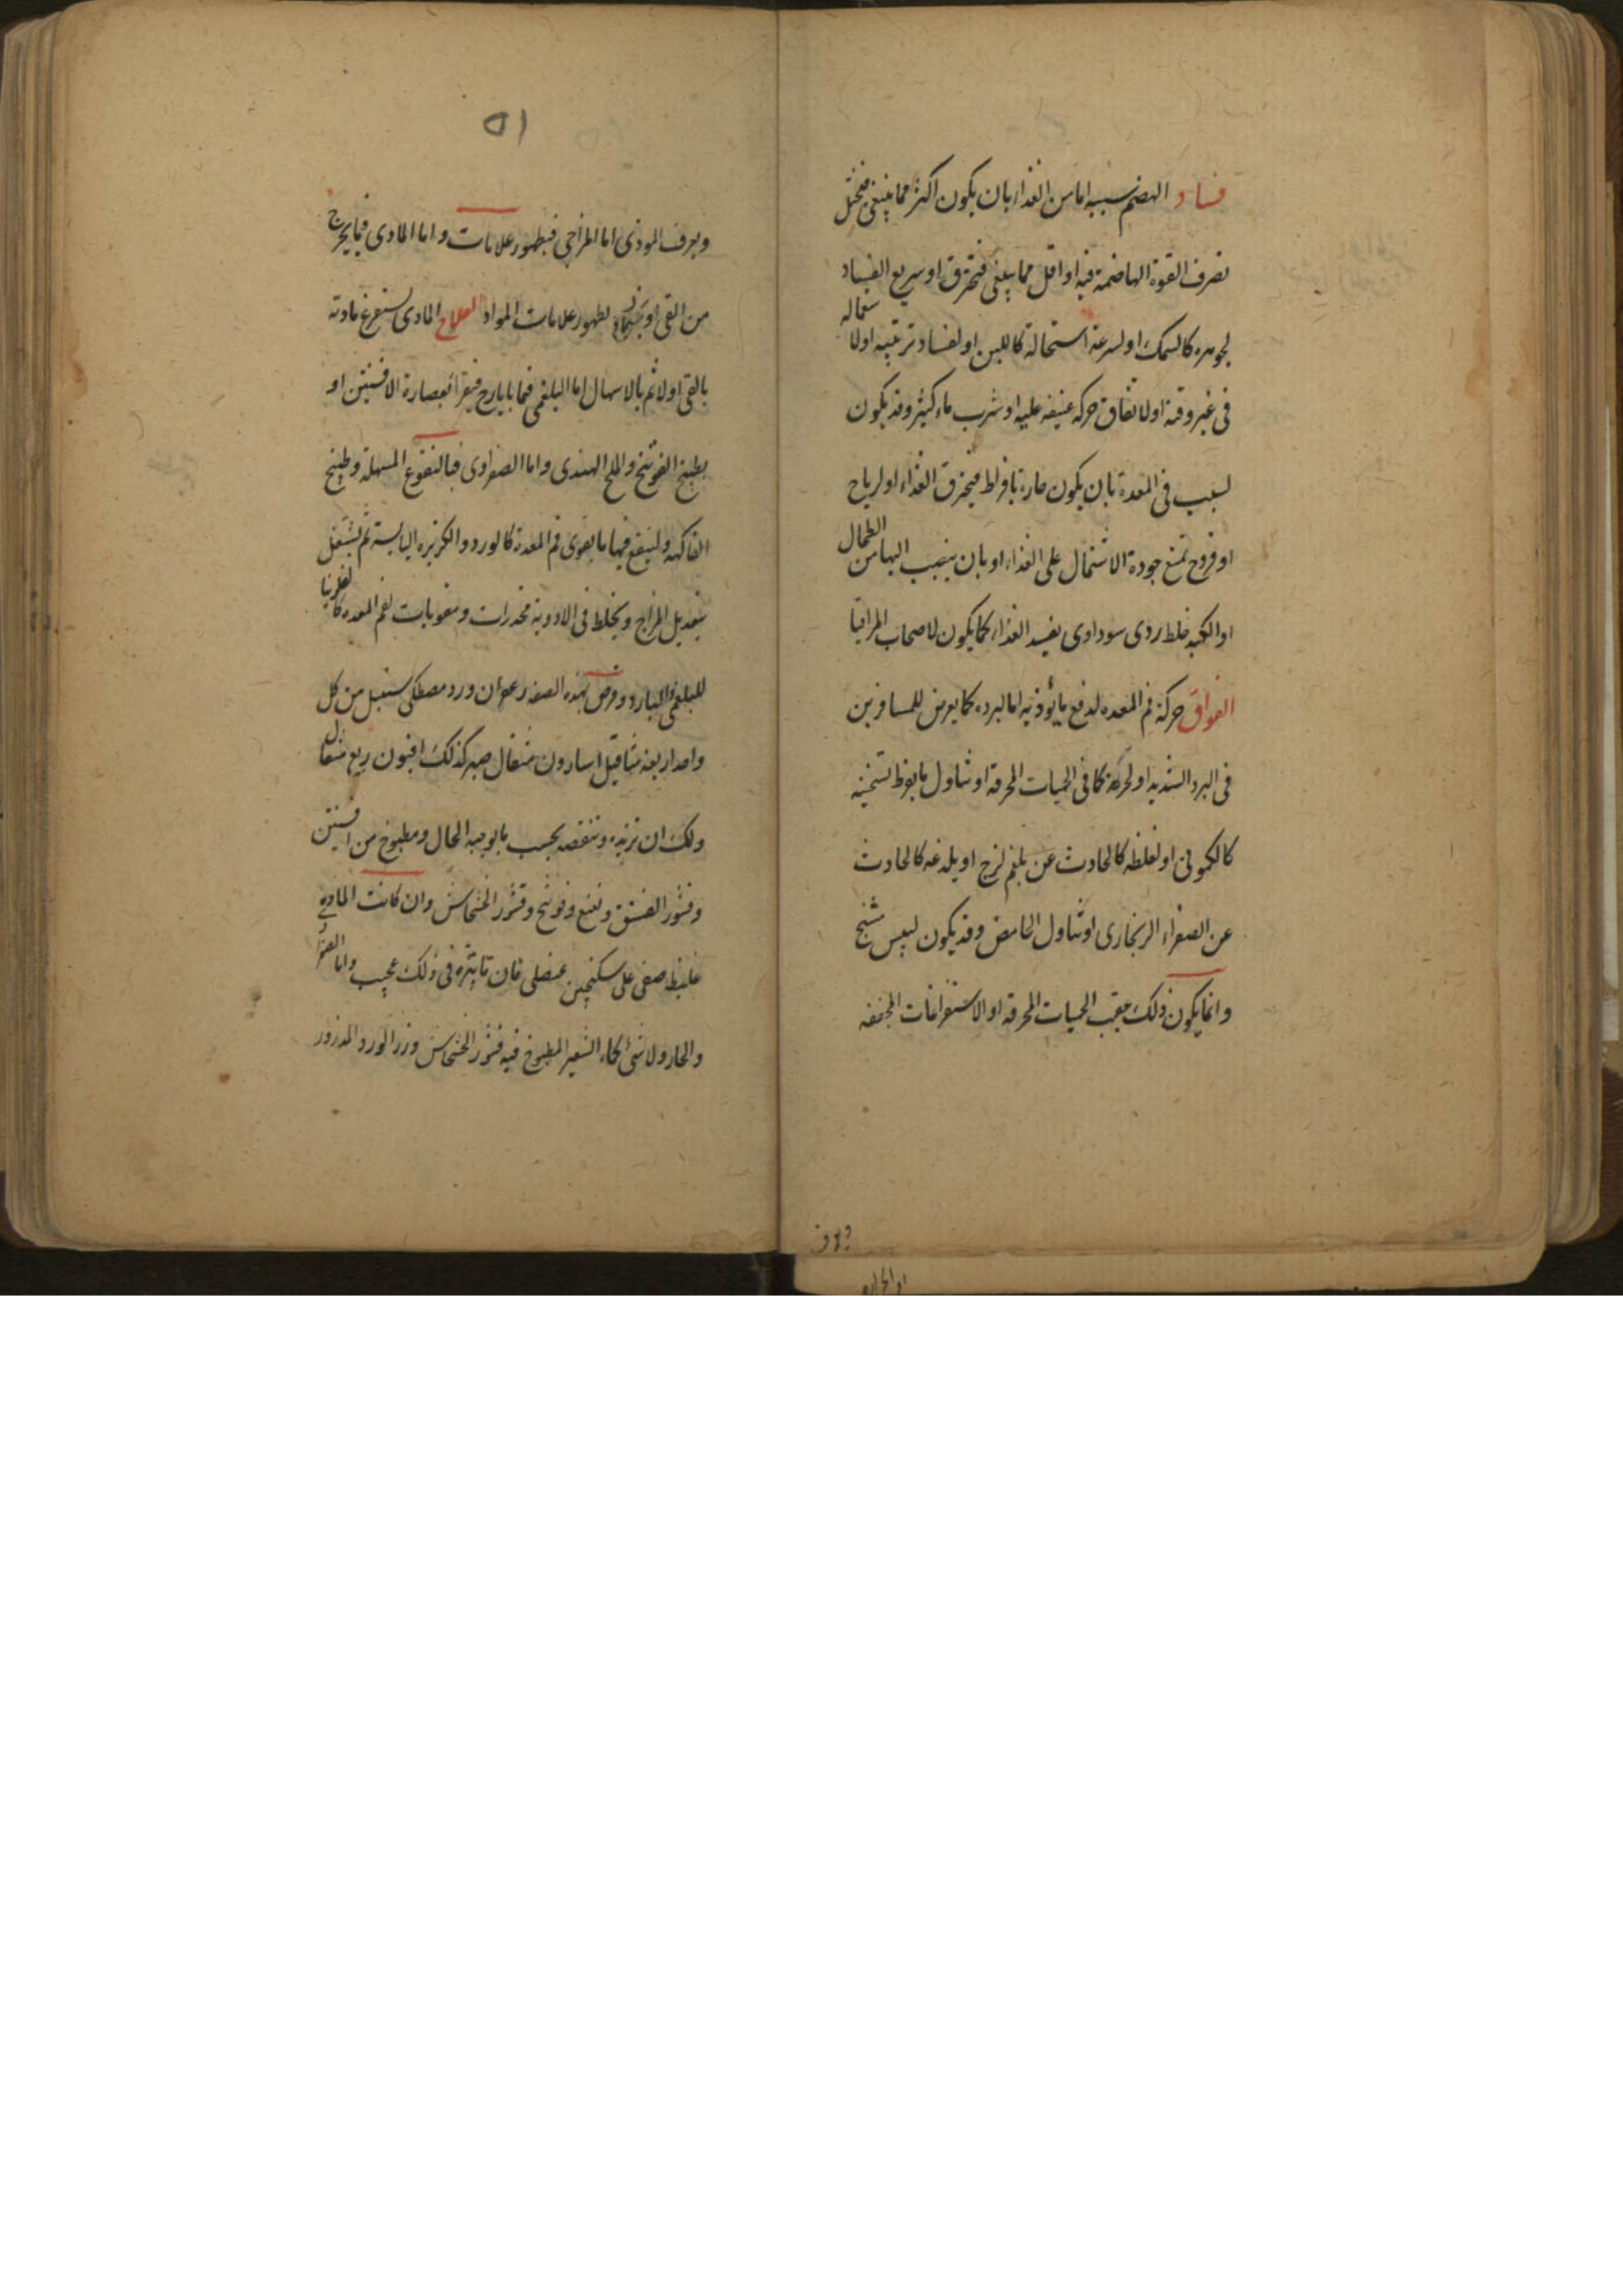 فساد الهضم سببه اما من الغذا بان يكون اكثر مما ينبغى فيختل
تصرف القوة الهاضمة فيه او اقل مما ينبغى فتحرق او سريع الفساد
لجوهره كالسمك او لسرعة استحالة كاللبن او لفساد ترتيبه او لاستعماله
فى غير وقته او لاتفاق حركه عنيفه عليه او شرب ماء كثير وقد يكون
لسبب فى المعدة بان يكون حارة بافراط فيحترق الغذاء او لرياح
او قروح تمنع جودة الاشتمال على الغذاء او بان ينصب اليها من الطحال
او الكبد خلط ردى سوداوى يفسد الغذاء كما يكون لاصحاب المراقيا
الفواق حركة فم المعده لدفع ما يؤذيه اما لبرده كما يعرض للمسافرين
فى البرد الشديد او لحره كما فى الحميات المحرقة او تناول ما يفرط تسخينه
كالكمونى او لغلظه كالحادث عن بلغم لزج او يلذعه كالحادث
عن الصفراء الزنجارى او تناول الحامض وقد يكون ليبس متشنج
وانما يكون ذلك بعقب الحميات المحرقة او الاستفراغات المجففه
ويعرف
٥١
ويعرف الموذى اما المزاجى فبظهور علامات واما المادى فبما يخرج
من القى او لظهور علامات المواد العلاج المادى يستفرغ مادته
بالقى اولا ثم بالاسهال اما البلغمى فبما بايارج فيقرا بعصارة الافسنتين او
بطبيخ الفوتنج والملح الهندى واما الصفراوى فبالنقوع المسهلة وطبيخ
الفاكهه ولينقع فيها ما يقوى فم المعدة كالورد والكزبره اليابسة ثم يشتغل
بتعديل المزاج ويخلط فى الادوية مخدرات ومقويات لفم المعده كالفلونيا
للبلغمى والبارد وقرص بهذه الصفه زعفران ورد مصطكى سنبل من كل
واحد اربعة مثاقيل اسارون مثقال صبر كذلك افيون ربع مثقال
ولك ان تزيده وتنقصه بحسب ما يوجبه الحال ومطبوخ من افسنتين
وقشور الفستق ونعنع وفوتنج وقشور الخشخاش وان كانت المادة
غليظه صفى على سكنجبين عنصلى فان تاثيره فى ذلك عجيب واما الصفراوى
والحار ولا شئ كماء الشعير المطبوخ فيه قشور الخشخاش وزر الورد المذرور